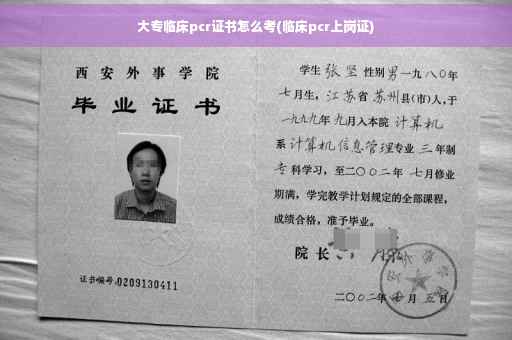 大专临床pcr证书怎么考(临床pcr上岗证)
西安外事学院
毕业证书
证书编号:0209130411
学生张坚性别男一九八〇年
七月生,江苏省苏州县(市)人,于
一九九九年九月入本院计算机
系计算机信息管理专业三年制
专科学习,至二〇〇二年七月修业
期满,学完教学计划规定的全部课程,
成绩合格,准予毕业。
院长
二〇〇二年 月五日